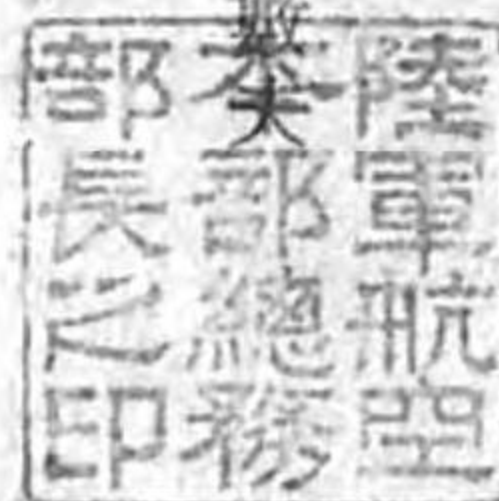 陸軍航空
本部總務
部長之印